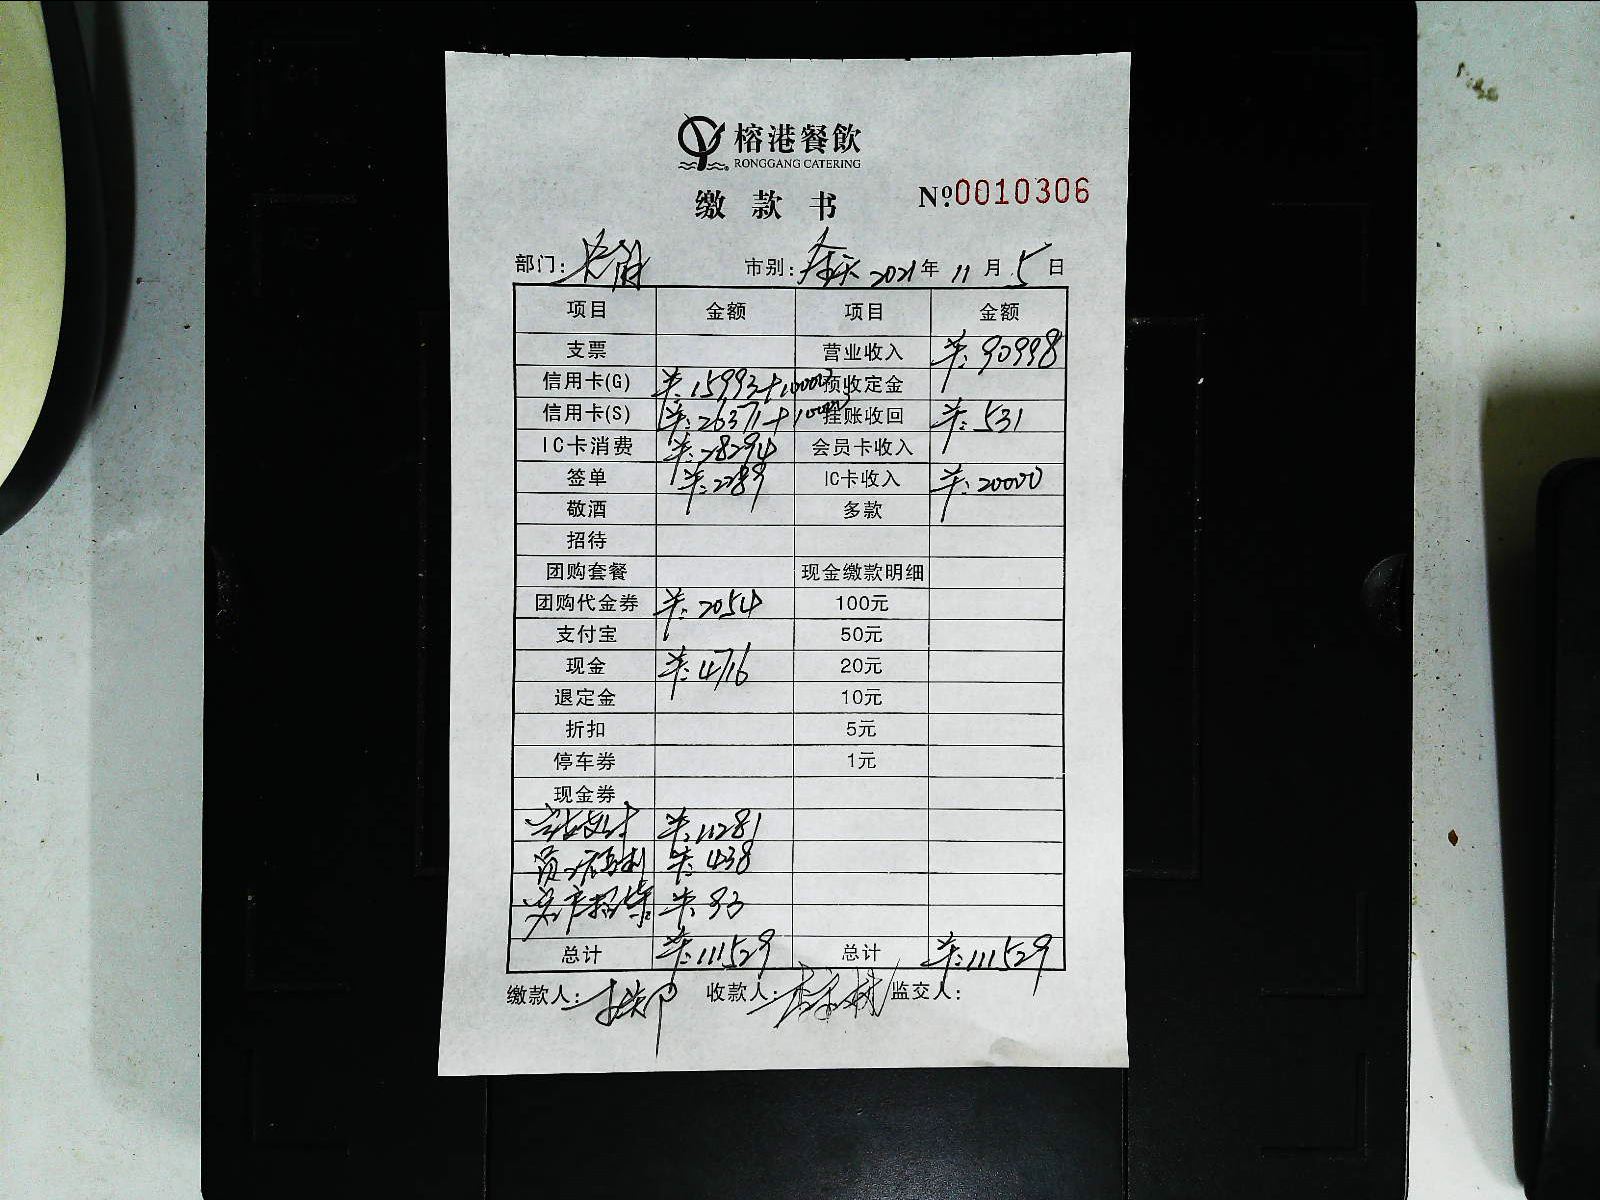 榕港餐飲
RONGGANG CATERING
缴款书 №0010306
部门: 市别:全天 2021年11月5日
项目 金额 项目 金额
支票 营业收入 羊:90998
信用卡(G) 羊:15993+10000 预收定金
信用卡(S) 羊:26371+10000 挂账收回 羊:531
IC卡消费 羊:28294 会员卡收入
签单 羊:2289 IC卡收入 羊:20000
敬酒 多款
招待
团购套餐 现金缴款明细
团购代金券 羊:2054 100元
支付宝 50元
现金 羊:4716 20元
退定金 10元
折扣 5元
停车券 1元
现金券
支付 羊:11281
员工福利 羊:438
客户招待 羊:93
总计 羊:111529 总计 羊:111529
缴款人: 收款人: 监交人: